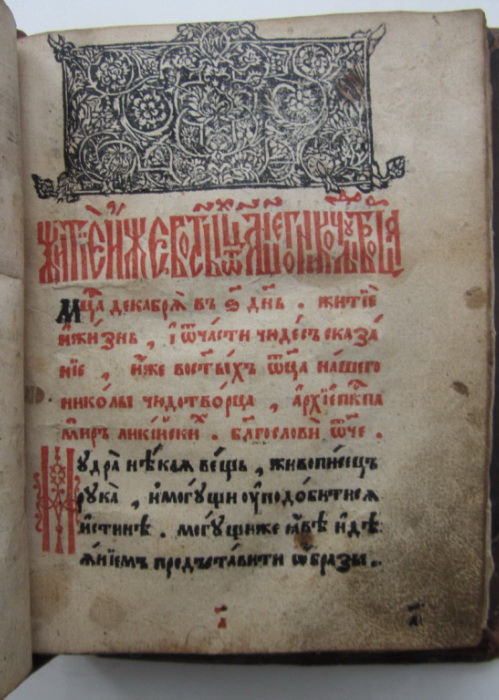 житїе и҆́же во ст҃ы́хъ ѻ҆ц҃а̀ нашегѡ николы чюдотворца
мц҃а декабрѧ въ ѕ҃ днь . житїе
и҆жизнь , і҆ ѿчасти чюдесъ сказа
нїе , и҆́же вост҃ы́хъ ѻ҆ц҃а на́шего
николы чюдотво́рца , а҆рхїепⷭ҇кпа
ми́ръ ликі́йски . блⷭ҇гослови ѻ҆́ч҃е .
Мꙋдра нѣ́каѧ ве́щь , живописецъ
рꙋка̀ , и҆могꙋщи ᲂу҆подо́битисѧ
и҆́стинѣ . могꙋщиже ꙗ҆́вѣ и҆дѣ
ѧ́нїемъ предъста́вити ѻ҆́бразы .
а҃ а҃